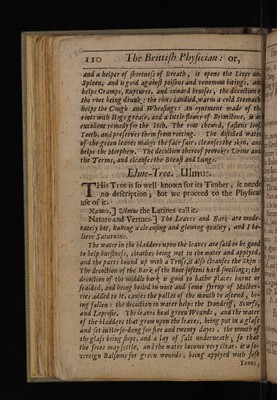 110 The Brittish Physician: or,
and a helper of shortness of Breath, it opens the Liver and
Spleen, and is good against poisons and venomous bitings, and
helps Cramps, Ruptures, and inward bruises, the decoction of
the root being drunk; the root candied, warm a cold Stomach
helps the Cough and Wheesings: An oyntment made of the
roots with Hogs grease, and a little flower of Brimstone, is an
excellent remedy for the Itch. The root chewed, fastens loose
Teeth, and preserves them from rotting. The distilled water
of the green leaves makes the face fair, cleanses the skin, and
helps the Morphew. The decoction thereof provokes Urine and
the Terms, and cleanses the Breast and Lungs.
Elme-Tree. Ulmus.
THis Tree is so well known for its Timber, it needs
no description; but we proceed to the Physical
use of it.
Names.] Ulmus the Latines call it.
Nature and Vertues.] The Leaves and Bark are mode-
rately hot, having a cleansing and glewing quality, and I be-
lieve Saturnine.
The water in the bladders upon the leaves are said to be good
to help burstness, cloathes being wet in the water and applyed,
and the parts bound up with a Truss, it also cleanses the Skin
The decoction of the Bark of the Root softens hard swellings; the
decoction of the middle bark is good to bathe places burnt or
scalded, and being boiled in wine and some syrup of Mulber-
ries added to it, causes the pallat of the mouth to ascend, be-
ing fallen: the decoction in water helps the Dandriff, Scurfs,
and Leprosie. The leaves heal green Wounds, and the water
of the bladders that grow upon the leaves, being put in a glass
and set in Horse-dung for five and twenty dayes, the mouth of
the glass being stopt, and a lay of salt underneath, so that
the feces may settle, and the water become very clear, is a so-
vereign Balsome for green wounds, being applyed with soft
Tents,